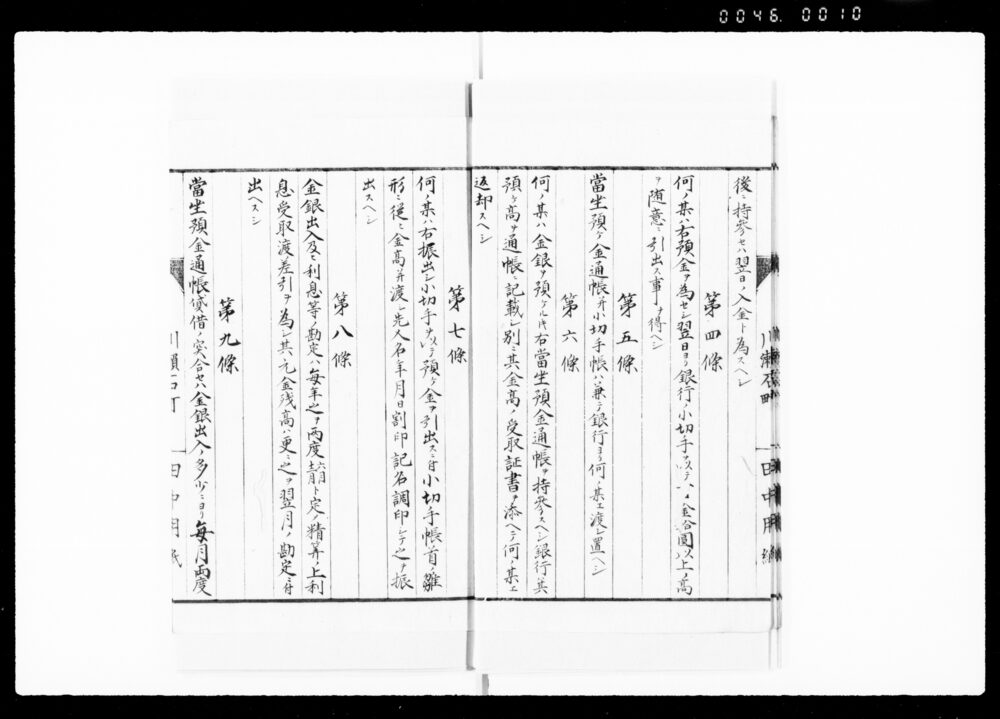 0046. 0010
後ニ持参セハ翌日ノ入金ト為スヘシ
第四條
何ノ某ハ右預金ヲ為セシ翌日ヨリ銀行ノ小切手ヲ以テ金拾圓以上ノ高
ヲ随意ニ引出ス事ヲ得ヘシ
第五條
當坐預ケ金通帳并小切手帳ハ兼テ銀行ヨリ何ノ某エ渡シ置ヘシ
第六條
何ノ某ハ金銀ヲ預ケル時右當坐預金通帳ヲ持参スヘシ銀行ハ其
預ケ高ヲ通帳ニ記載シ別ニ其金高ノ受取証書ヲ添ヘテ何ノ某エ
返却スヘシ
第七條
何ノ某ハ右振出シ小切手ヲ以テ預ケ金ヲ引出スニ付小切手帳首ノ雛
形ニ従ヒ金高并渡シ先人名年月日割印記名調印シテ之ヲ振
出スヘシ
第八條
金銀出入及ヒ利息等ノ勘定ハ毎年之ヲ両度ト定メ精算ノ上利
息受取渡差引ヲ為シ其元金残高ハ更ニ之ヲ翌月ノ勘定ニ付
出スヘシ
第九條
當坐預金通帳貸借ノ突合セハ金銀出入ノ多少ニヨリ毎月両度
川瀬石町
田中用紙